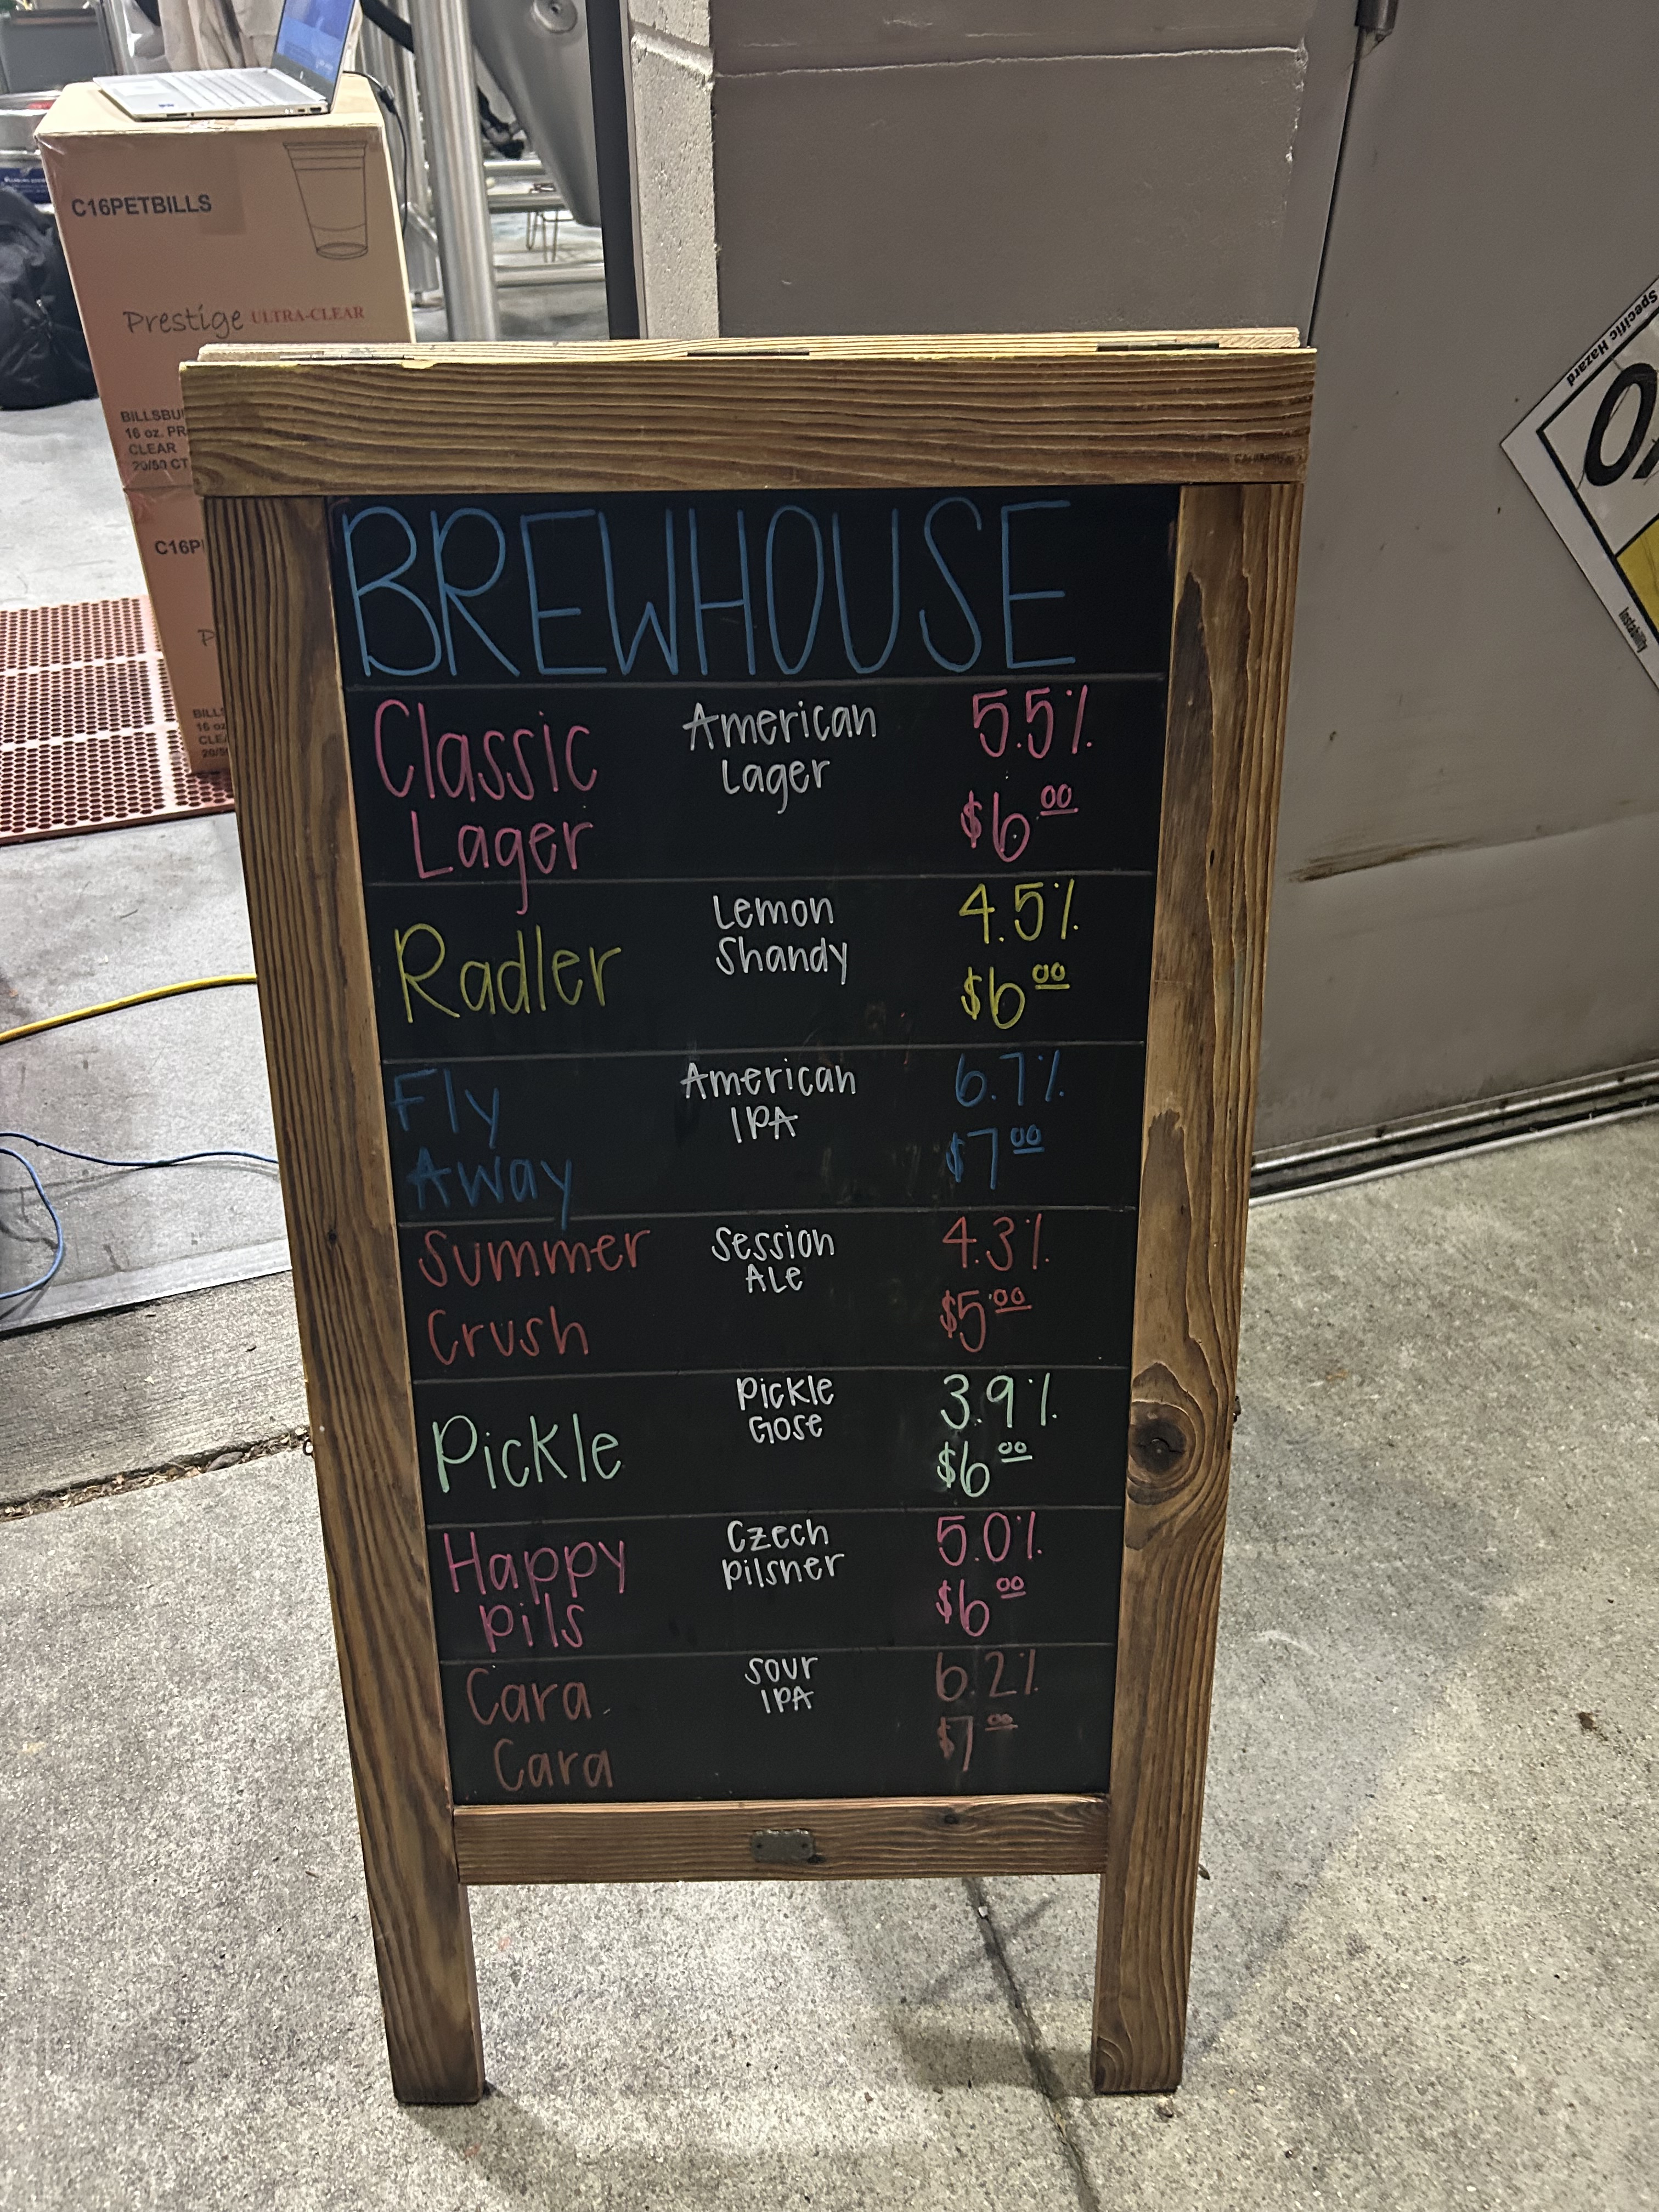 C16PETBILLS
Prestige ULTRA-CLEAR
16 oz.
CLEAR
20/50 CT
Specific Hazard
Instability
BREWHOUSE
Classic
Lager
American
Lager
5.5%
$6.00
Radler
Lemon
Shandy
4.5%
$6.00
Fly
Away
American
IPA
6.7%
$7.00
Summer
Crush
Session
ALe
4.3%
$5.00
Pickle
Pickle
Gose
3.9%
$6.00
Happy
Pils
Czech
Pilsner
5.0%
$6.00
Cara
Cara
Sour
IPA
6.2%
$7.00